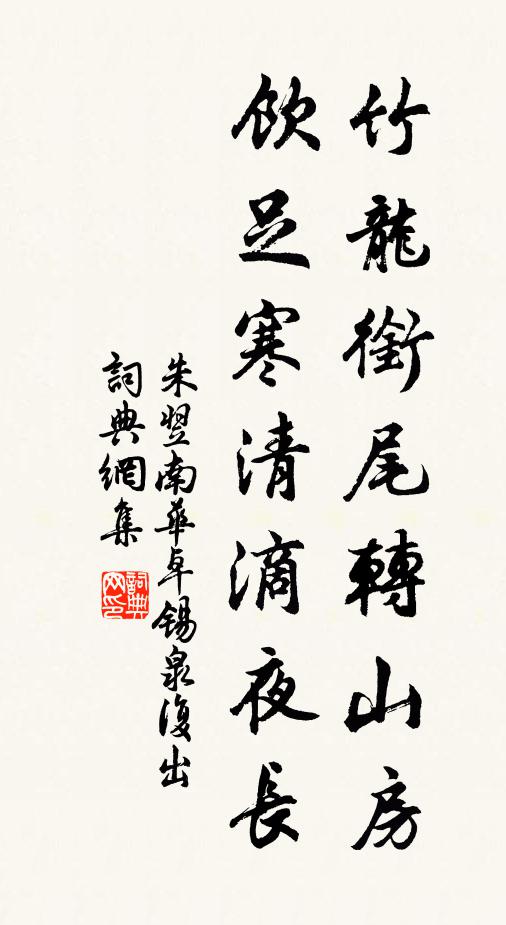 竹龍銜尾轉山房
飲足寒清滴夜長
朱翌南華卓錫泉復出
詞典網集
詞典网印